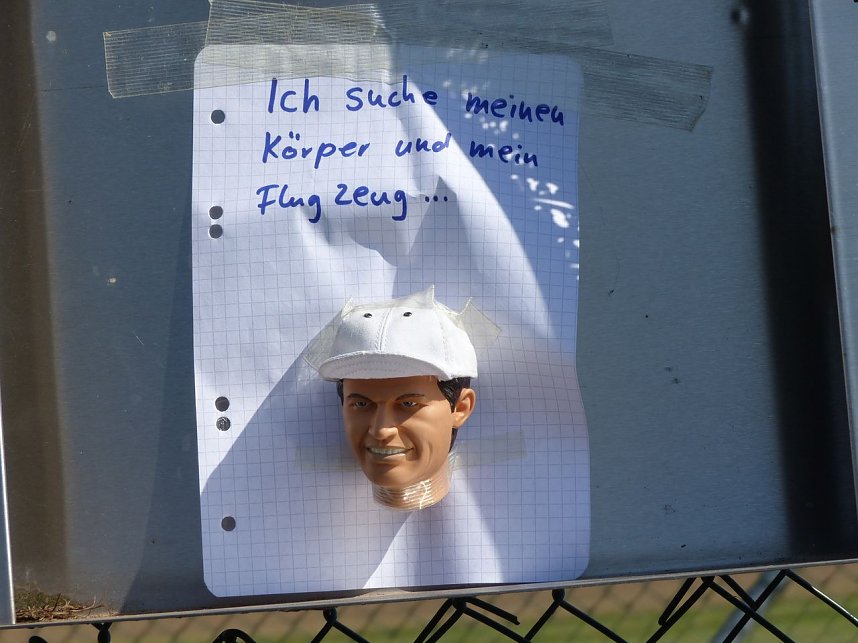 Ich suche meinen
Körper und mein
Flugzeug...